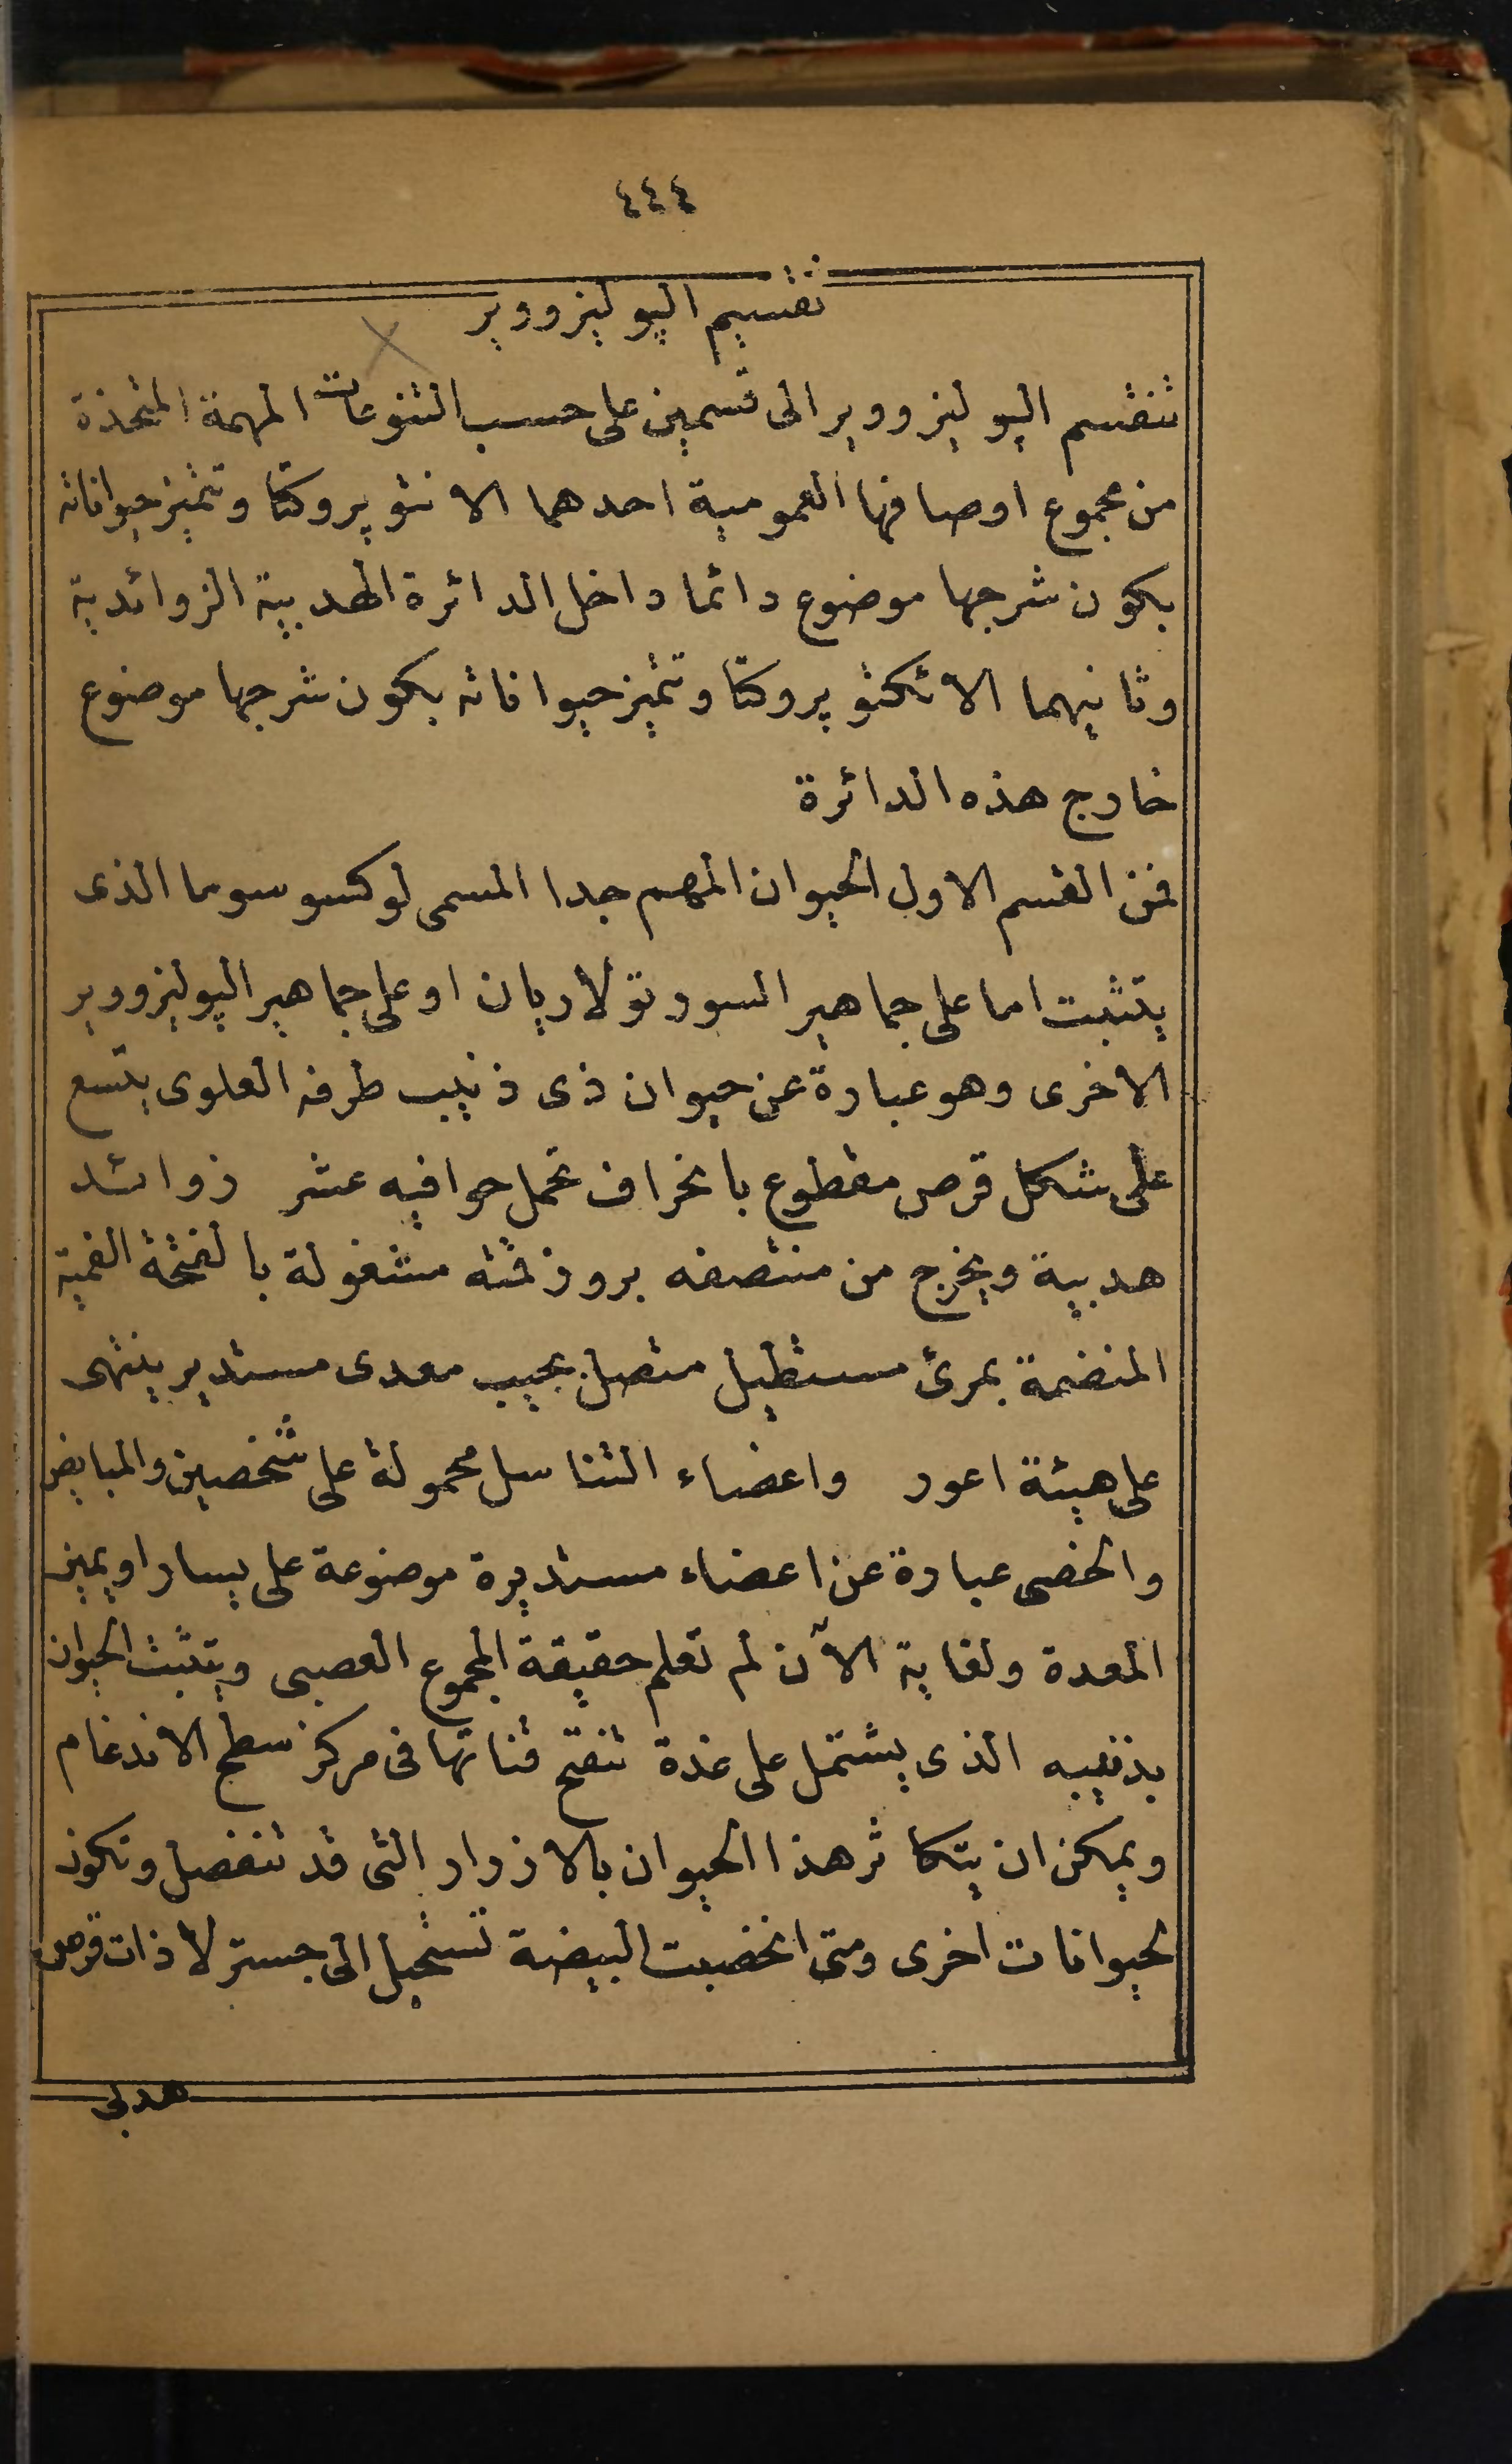 ٤٤٤
تقسيم اليوليزووير
تنقسم اليوليزووير الى قسمين على حسب التنوعات المهمة المتخذة
من مجموع اوصافها العمومية احدهما الانتوپروكتا وتتميز حيواناته
بكون شرجها موضوع دائما داخل الدائرة الهدبية الزوائدية
وثانيهما الاتكتوپروكتا وتتميز حيواناته بكون شرجها موضوع
خارج هذه الدائرة
فمن القسم الاول الحيوان المهم جدا المسمى لوكسوسوما الذى
يتثبت اما على جماهير السورتولاريان او على جماهير اليوليزووير
الاخرى وهو عبارة عن حيوان ذى ذنيب طرفه العلوى يتسع
على شكل قرص مقطوع بانحراف تحمل حوافيه عشر زوائد
هدبية ويخرج من منتصفه بروز قمته مشغولة بالفتحة الفمية
المنضمة بمرئ مستطيل متصل بجيب معدى مستدير ينتهى
على هيئة اعور واعضاء التناسل محمولة على شخصين والمبايض
والخصى عبارة عن اعضاء مستديرة موضوعة على يسار او يمين
المعدة ولغاية الآن لم تعلم حقيقة المجموع العصبى ويتثبت الحيوان
بذنيبه الذى يشتمل على غدة تنفتح قناتها فى مركز سطح الاندغام
ويمكن ان يتكاثر هذا الحيوان بالازرار التى قد تنفصل وتكون
لحيوانات اخرى ومتى انخصبت البيضة تستحيل الى جسترلا ذات قرص
هدبى